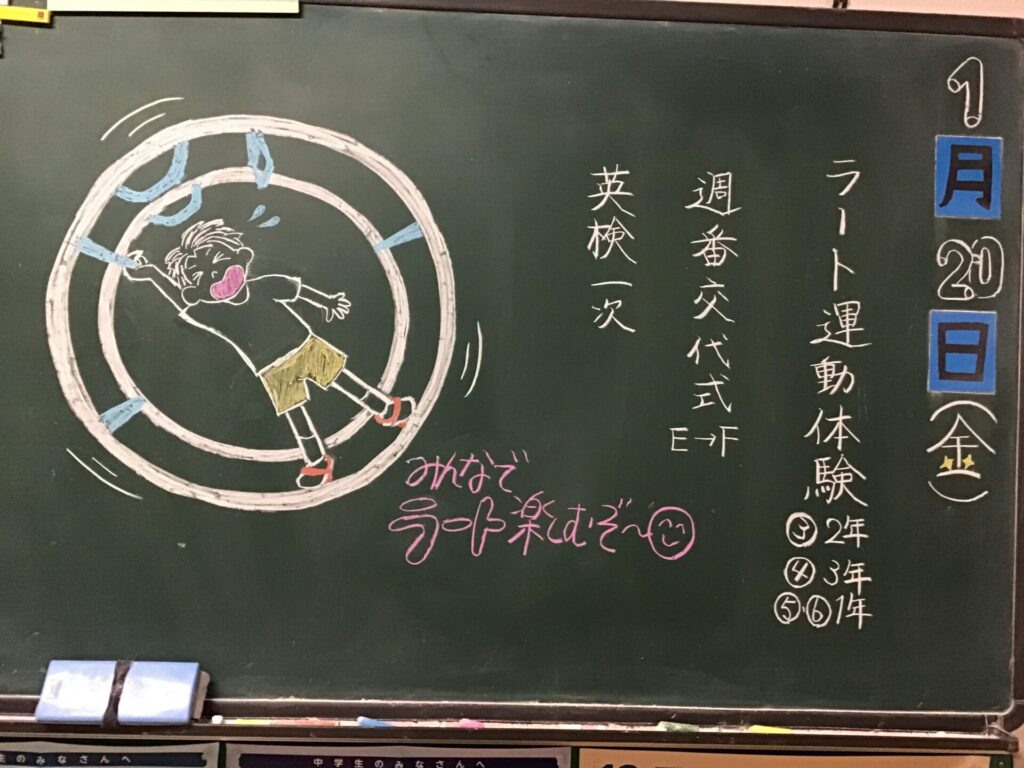 1月20日(金)
ラート運動体験
③2年
④3年
⑤・⑥1年
週番交代式
E→F
英検一次
みんなで
ラート楽しむぞ〜
生のみなさんへ
中学生のみなさんへ